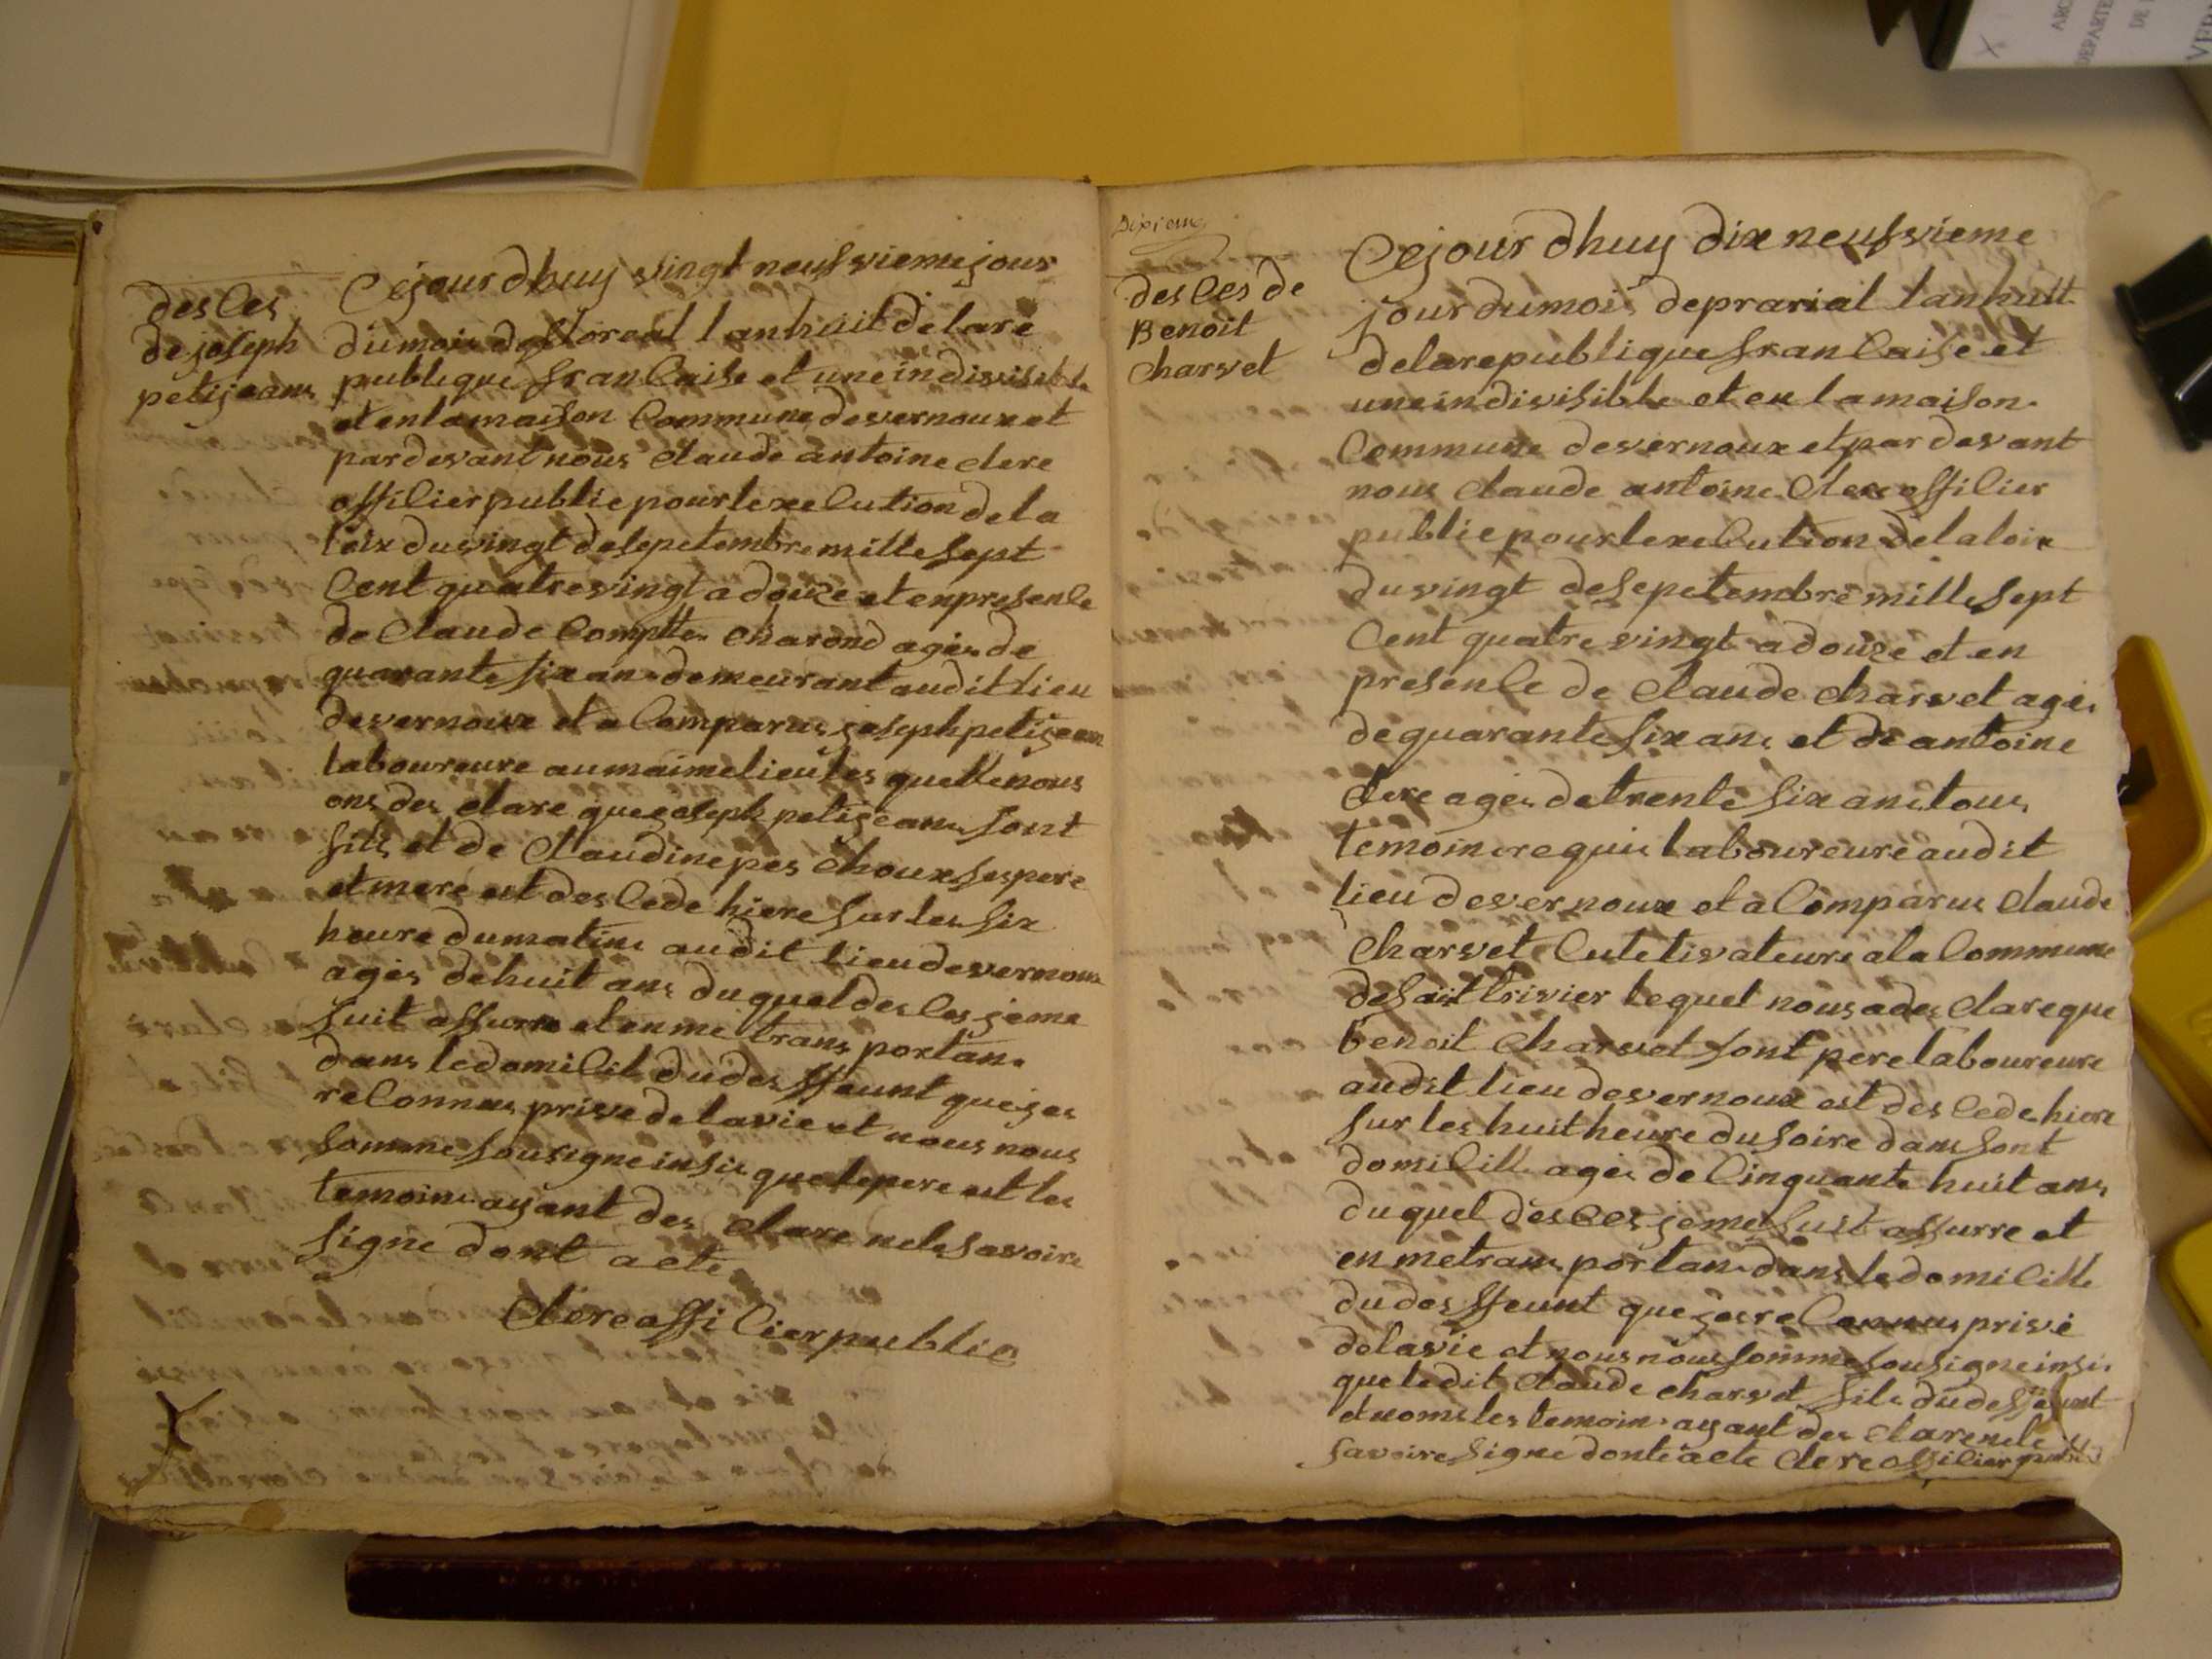 des ces
de joseph
petijeans
Cejourdhuy vingt neufvieme jour
du mois de floreal lan huit de la re
publique francaise et une indivisible
et en la maison Commune de vernoux et
par devant nous claude antoine clere
officier public pour lexecution de la
loix du vingt de sepetembre mille sept
Cent quatre vingt a douze et en presence
de Claude Comptte charond ages de
quarante six ans demeurant audit lieu
de vernoux et a Comparus joseph petijean
laboureure au maime lieu les quelle nous
ons des clare que joseph petijeans sont
fils et de Claudine pes choux ses pere
et mere est des cede hiere sur les six
heure du matins audit lieu de vernoux
ages de huit ans du quel des ces je me
suit assurre et en me trans portan
dans le domicil du des ffeunt que jes
reconnus prive de la vie et nous nous
somme sousigne insis que le pere est les
temoins ayant des clare ne le savoire
signe dont acte
Clere officier public
Dixieme
des ces de
Benoit
charvet
Cejour dhuy dix neufvieme
jour du mois de prarial lan huit
de la republique francaise et
une indivisible et en la maison
Commune de vernoux et par devant
nous claude antoine Clere officier
public pour lexecution de la loix
du vingt de sepetembre mille sept
Cent quatre vingt a douze et en
presence de claude charvet ages
de quarante six ans et de antoine
clere ages de trente six ans tous
temoins requis laboureure audit
lieu de vernoux et a Comparus claude
charvet Culetivateure a la Commune
de sait trivier lequel nous a des clare que
benoit charvet sont pere laboureure
audit lieu de vernoux est des cede hiere
sur les huit heure du soire dans sont
domicille ages de Cinquante huit ans
du quel des ces je me suit assurre et
en me trans portans dans le domicille
du des ffeunt que jes reconnus prive
de la vie et nous nous somme sousigne insis
que le dit claude charvet fils du des ffeunt
et noms les temoins ayant des clare ne le
savoire signe dont acte clere officier public